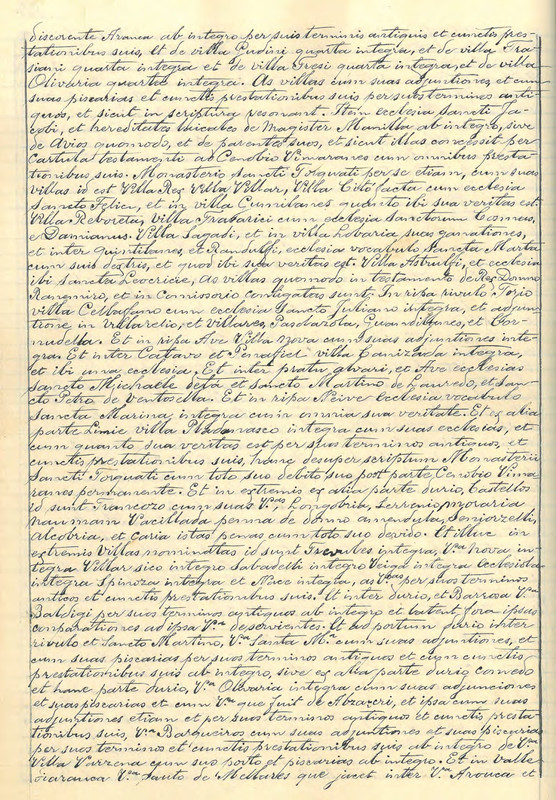 discorente Arauca ab integro per suis terminis antiquis et cunctis pres-
tationibus suis, et de villa Gudini quarta integra, et de villa Tra
siani quarta integra et de villa Tresi quarta integra, et de villa
Olivaria quarta integra. As villas cum suas adjuntiones et cum
suas piscarias et cunctis prestationibus suis per suis terminos anti-
quos, et sicut in scriptura resonant. Item ecclesia Sancti Ja-
cobi, et hereditates de Magister Manilla ab integro, sive
de Avios quomodo, et de parentes suos, et sicut illas concessit per
Cartula testamenti ad Cenobio Vimaranes cum omnibus presta-
tionibus suis. Monasterio Sancti Torquati per se etiam, cum suas
villas id est Villa Rex Villa Villar, Villa Cite facta cum ecclesia
Sancto Felice, et in villa Cumilanes quanto ibi sua veritas est.
Villa Reboretas, Villa Trasarici cum ecclesia Sanctorum Cosmas,
e Damianus. Villa Sagadi, et in villa Lobaria suas ganationes,
et inter Quintilanes, et Randulfi, ecclesia vocabulo Sancta Marta
cum suis dextris, et quod ibi sua veritas est Villa Astrulfi, et ecclesia
ibi Sancta Leocricie, As villas quomodo in testamento de Rex Domno
Ranemiro, et in Comissorio contigatas sunt. In ripa rivulo Torio
villa Cellafano cum ecclesia Sancto Juliano integra, et adjun-
tione in villarelio, et villares, Pausarola, Guandilanes, et Cor-
nudella. Et in ripa Ave Villa Nova cum suas adjuntiones inte-
gra. Et inter Catavo et Penafiel villa Canizada integra,
et ibi una ecclesia. Et inter pratu alvari, et Ave ecclesias
Sancto Michaelle deta et Sancto Martino de Lauredo, et San-
cto Petro de Ventosella. Et in ripa Neive Ecclesia vocabulo
Sancta Marina, integra cum omnia sua veritate. Et ex alia
parte Limie villa Pladanasco integra cum suas ecclesias, et
cum quanto sua veritas est per suos terminos antiquos, et
cunctis prestationibus suis, hanc desuper scriptum Monasterii
Sancti Torquati cum toto suo debito suo post parte Cenobio Vima-
ranes permanente. Et in extremis ex alia parte durio, Castellos
id sunt Trancozo cum suas Vªs, Longobria, Terrenio, moraria
naumam Vacillada penna de domno amendula, Senjorzelli,
Alcobria, et Caria istas penas cum toto suo devido. Et illuc in
extremis Villas nominatas id sunt Trevules integra, Vª Nova in-
tegra Villar sico integro Sabadelli integro Veiga integra Ecclesiola
integra Spinoza integra et Nuce integra, as Vªs per suos terminos
antios et cunctis prestationibus suis. Et inter durio, et Barrosa Vª
Baldigi per suos terminos antiquos ab integro et batent fora ipsas
comparationes ad ipsa Vª deservientes. Et ad portum Durio inter
rivulo et Sancto Martino, Vª Santa Mª cum suas adjuntiones, et
cum suas piscarias per suos terminos antiquos et cum cunctis
prestationibus suis ab integro, sive ex alia parte durio comeso
et hanc parte durio, Vª Olivaria integra cum suas adjunciones
et suas piscarias et cum Vª que fuit de Abraxri, et ipsa cum suas
adjuntiones etiam et per suos terminos antiquos et cunctis presta-
tionibus suis, Vª Barqueiros cum suas adjuntiones et suas piscarias
per suos terminos et cunctis prestationibus suis ab integro de Vª
Villa Varzena cum suo porto et piscarias ab integro. Et in valle
Vª Sauto de Mellares que jacet inter Vª Arouca et